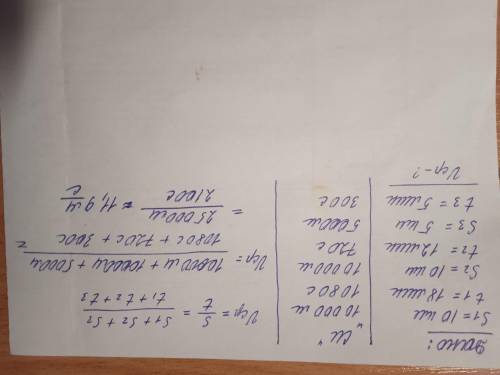 Дано:
S1 = 10 км
t1 = 18 мин
S2 = 10 км
t2 = 12 мин
S3 = 5 км
t3 = 5 мин
Vср - ?
"СИ"
10 000 м
1080 с
10 000 м
720 с
5000 м
300 с
Vср = S/t = (S1 + S2 + S3)/(t1 + t2 + t3)
Vср = (10000 м + 10000 м + 5000 м)/(1080 с + 720 с + 300 с) =
= 25000 м/2100 с = 11,9 м/с